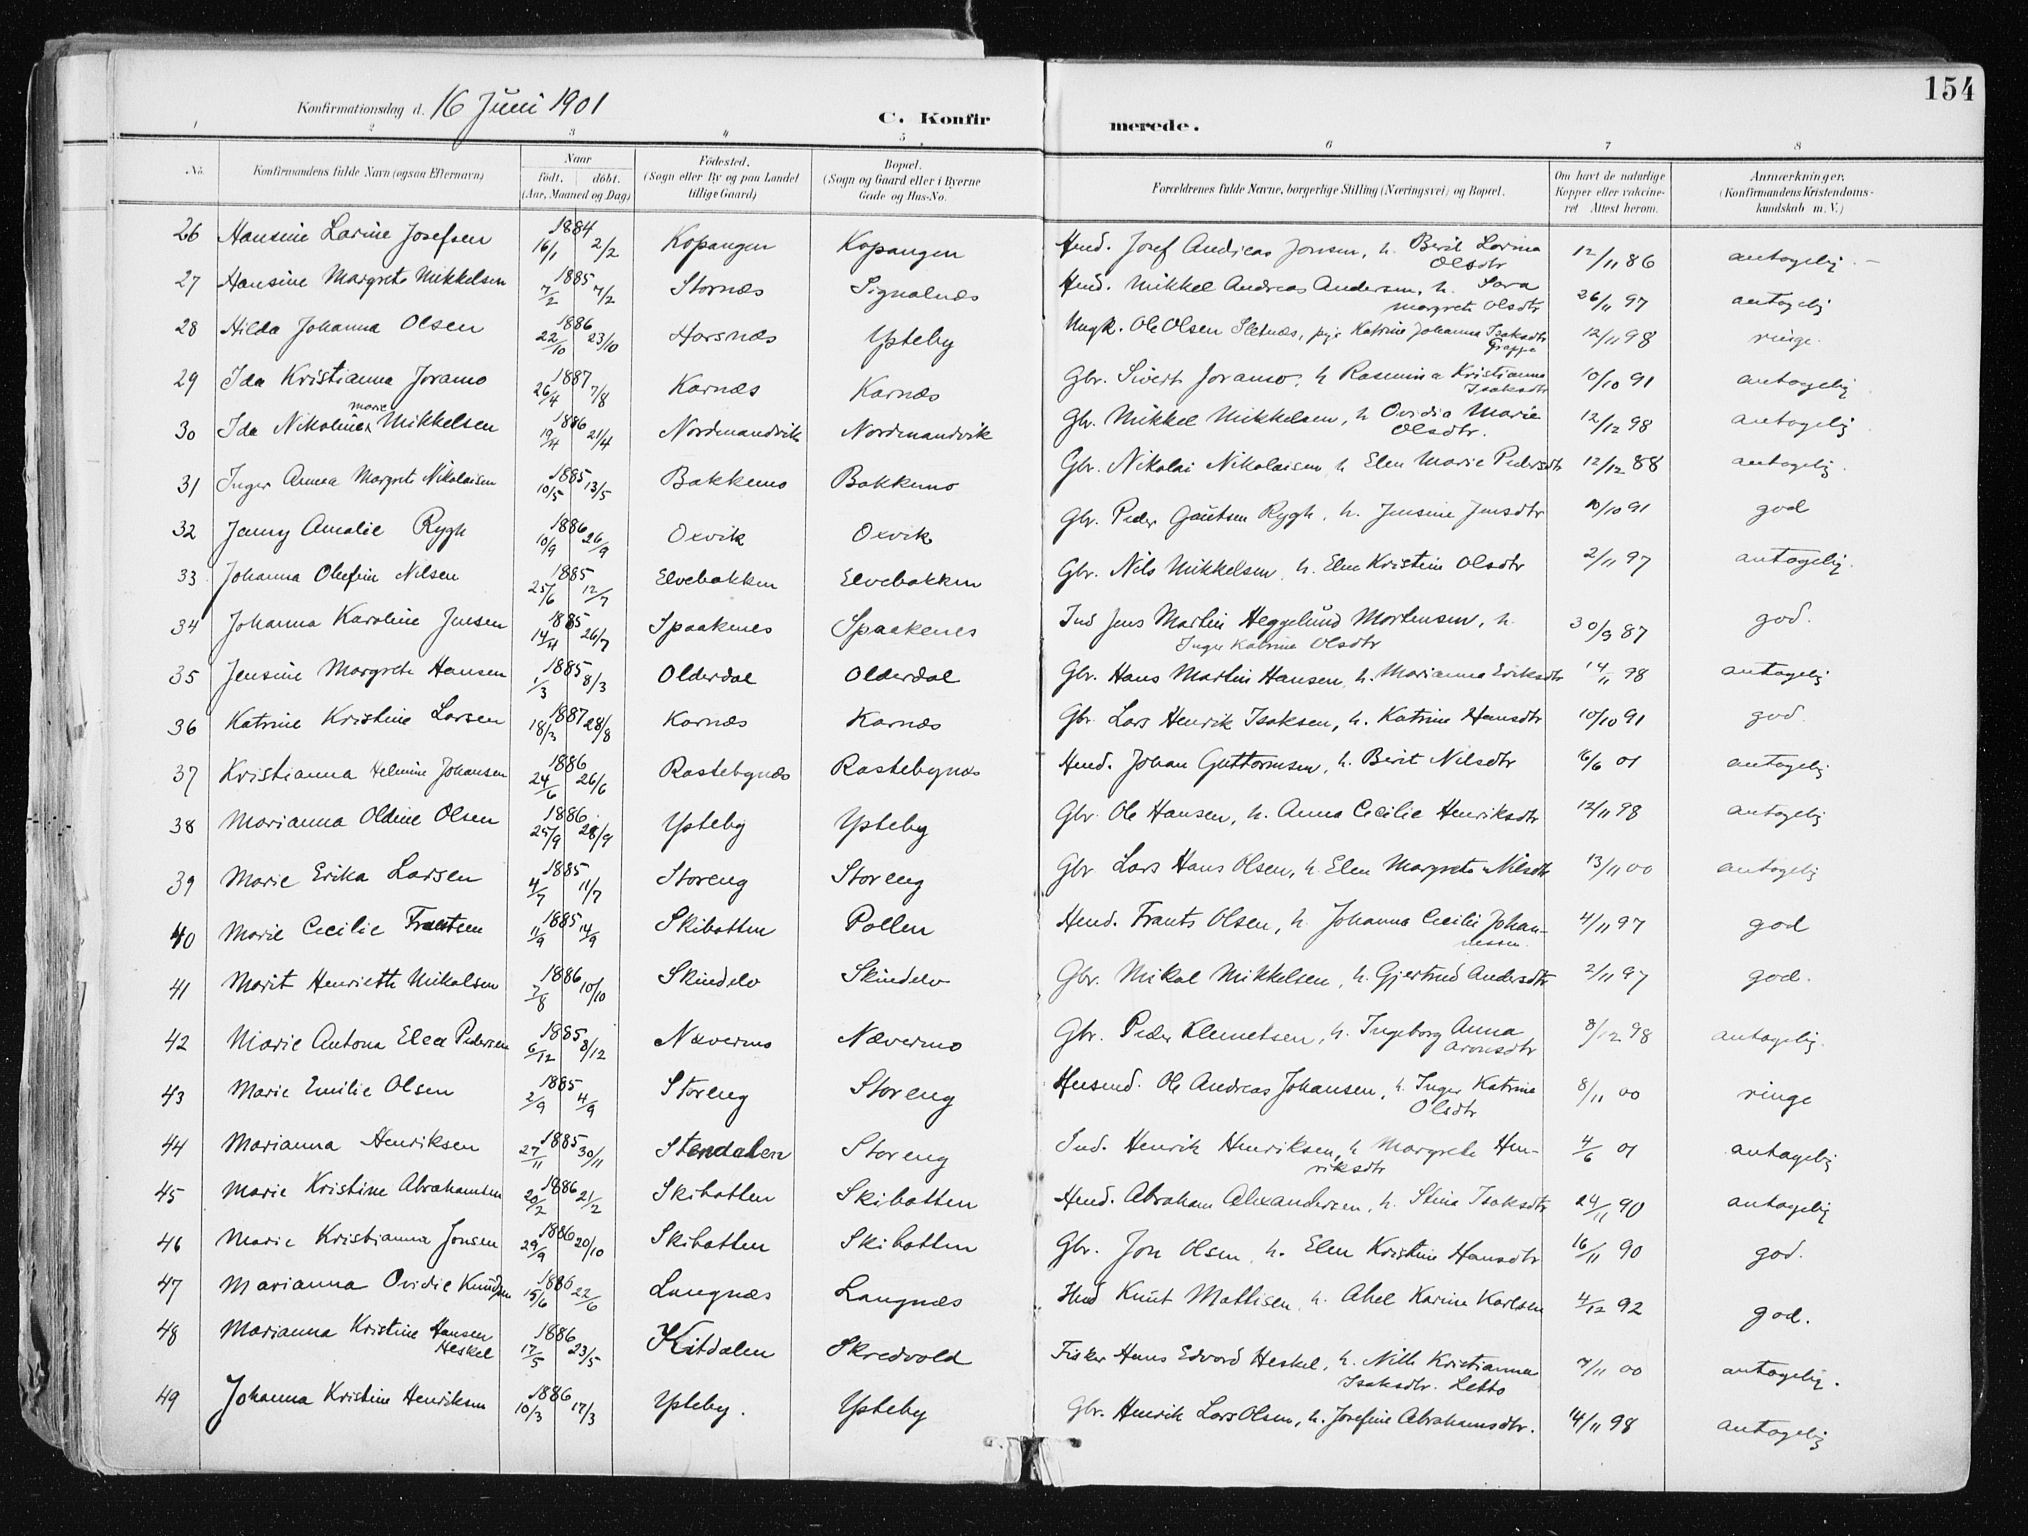 154
Konfirmationsdag d. 16 Juni 1901
C. Konfirmerede.
1 2 3 4 5 6 7 8
No. Konfirmandens fulde Navn (ogsaa Efternavn) Naar født. døbt. (Aar, Maaned og Dag) Fødested. (Sogn eller By og paa Landet tillige Gaard) Bopæl. (Sogn og Gaard eller i Byerne Gade og Hus-No. Forældrenes fulde Navne, borgerlige Stilling (Næringsvei) og Bopæl. Om havt de naturlige Kopper eller vakcineret Attest herom. Anmærkninger. (Konfirmandens Kristendomskundskab m. V.)
26 Hansine Larine Josefsen 1884 16/1 2/2 Kopangen Kopangen Hmd. Josef Andreas Jonsen, h. Berit Lovina Olsdtr 12/11 86 antagelig.
27 Hansine Margrete Mikkelsen 1885 7/2 7/2 Stornæs Signalnæs Hmd. Mikkel Andreas Andersen, h. Sara Margrete Olsdtr 26/11 97 antagelig
28 Hilda Johanna Olsen 1886 22/10 23/10 Horsnæs Ysteby Ungk. Ole Olsen Sletnæs, pige Katrine Johanna Isaksdtr Grape 12/11 98 ringe.
29 Ida Kristianna Joramo 1887 26/4 7/8 Karnæs Karnæs Gbr. Sivert Joramo, h Rasmina Kristianna Isaksdtr 10/10 91 antagelig
30 Ida Nikoline Marie Mikkelsen 1886 19/4 21/4 Nordmandvik Nordmandvik Gbr. Mikkel Mikkelsen, h Ovidia Marie Olsdtr. 12/12 98 antagelig
31 Inger Anna Margrete Nikolaisen 1885 10/5 13/5 Bakkemo Bakkemo Gbr. Nikolai Nikolaisen, h Elen Marie Pedersdtr 12/12 88 antagelig.
32 Jenny Amalie Rygh 1886 10/9 26/9 Oxvik Oxvik Gbr. Peder Gautsen Rygh, h. Jensine Jensdtr 10/10 91 god
33. Johanna Olufine Nilsen 1885 25/6 12/7 Elvebakken Elvebakken Gbr. Nils Mikkelsen, h. Elen Kristine Olsdtr 2/11 97 antagelig.
34 Johanna Karoline Jensen 1885 14/4 26/7 Spaakenes Spaakenes Ind Jens Martin Heggelund Mortensen, h. Inger Katrine Olsdtr 30/9 87 god.
35 Jensine Margrete Hansen 1885 1/3 8/3 Olderdal Olderdal Gbr. Hans Martin Hansen, h. Marianna Eriksdtr 14/11 98 antagelig
36 Katrine Kristine Larsen 1887 18/3 28/8 Karnæs Karnæs Gbr. Lars Henrik Isaksen, h. Katrine Hansdtr 10/10 91 god.
37 Kristianna Helmine Johansen 1886 24/6 26/6 Rastebynæs Rastebynæs Hmd. Johan Guttormsen, h. Berit Nilsdtr 6/6 01 antagelig
38 Marianna Oldine Olsen 1886 25/9 28/9 Ysteby Ysteby Gbr. Ole Hansen, h. Anna Cecilie Henriksdtr 12/11 98 antagelig
39 Marie Erika Larsen 1885 4/7 11/7 Storeng Storeng Gbr Lars Hans Olsen, h Elen Margrete Nilsdtr 13/11 00 antagelig
40 Marie Cecilie Frantsen 1885 11/9 14/9 Skibotten Pollen Hmd. Frants Olsen, h. Johanna Cecilie Johannessen. 4/11 97 god
41 Marit Henriette Mikalsen 1886 7/8 10/10 Skindelv Skindelv Gbr. Mikal Mikkelsen, h. Gjertrud Andersdtr 2/11 97 god.
42 Marie Antona Elea Pedersen 1885 6/12 8/12 Nævermo Nævermo Gbr. Peder Klemetsen, h. Ingeborg Anna Aronsdtr 8/12 98 antagelig.
43 Marie Emilie Olsen 1885 2/9 4/9 Storeng Storeng Husmd. Ole Andreas Johansen, h. Inger Katrine Olsdtr 8/11 00 ringe
44 Marianna Henriksen 1885 27/11 30/11 Stendalen Storeng Ind. Henrik Henriksen, h Margrete Henriksdtr 4/6 01 antagelig
45 Marie Kristine Abrahamsen 1886 20/2 21/2 Skibotten Skibotten Hmd. Abraham Alexandersen, h. Stina Isaksdtr 24/11 90 antagelig
46 Marie Kristianna Jonsen 1886 29/9 20/10 Skibotten Skibotten Gbr. Jon Olsen, h. Elen Kristine Hansdtr 16/11 90 god.
47 Marianna Ovidie Knudsen 1886 15/6 22/6 Langnæs Langnæs Hmd Knut Mathisen, h. Abel Karine Karlsen 4/12 92 god.
48 Marianna Kristine Hansen Heskel 1886 17/5 23/5 Kitdalen Skredvold Fisker Hans Edvard Heskel, h. Nille Kristianna Isaksdtr. Letto 7/11 00 antagelig.
49 Johanna Kristine Henriksen 1886 10/3 17/3 Ysteby. Ysteby Gbr. Henrik Lars Olsen, h. Josefine Abrahamsdtr. 14/11 98 antagelig